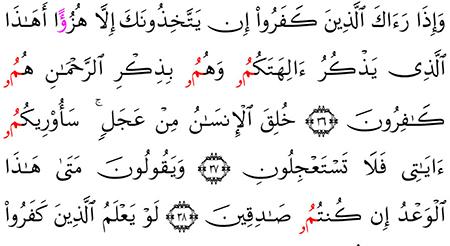 وَإِذَا رَءَاكَ ٱلَّذِينَ كَفَرُوٓاْ إِن يَتَّخِذُونَكَ إِلَّا هُزُؤًا أَهَـٰذَا
ٱلَّذِى يَذْكُرُ ءَالِهَتَكُمُۥ وَهُمُۥ بِذِكْرِ ٱلرَّحْمَـٰنِ هُمُۥ
كَـٰفِرُونَ ۝٣٦ خُلِقَ ٱلْإِنسَـٰنُ مِنْ عَجَلٍۢ ۚ سَأُوْرِيكُمُۥ
ءَايَـٰتِى فَلَا تَسْتَعْجِلُونِ ۝٣٧ وَيَقُولُونَ مَتَىٰ هَـٰذَا
ٱلْوَعْدُ إِن كُنتُمُۥ صَـٰدِقِينَ ۝٣٨ لَوْ يَعْلَمُ ٱلَّذِينَ كَفَرُواْ